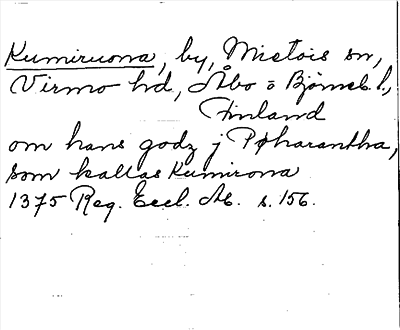 Kumiruona, by, Mietois sn,
Virmo hd, Åbo o Björneb. l.,
Finland
om hans godz j Pøharantha,
som kallas Kumirona
1375 Reg. Eccl. Ab. s. 156.